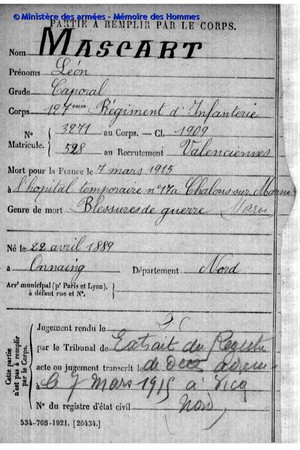 © Ministère des armées - Mémoire des Hommes
PARTIE À REMPLIR PAR LE CORPS.
Nom MASCART
Prénoms Léon
Grade Caporal
Corps 127ème Régiment d'Infanterie
N° 3271 au Corps. — Cl. 1909
Matricule. 528 au Recrutement Valenciennes
Mort pour la France le 7 mars 1915
à l'hôpital temporaire n°17 à Chalons sur Marne
Genre de mort Blessures de guerre
Né le 22 avril 1889
à Onnaing Département Nord
Arrt municipal (pr Paris et Lyon),
à défaut rue et N°.
Cette partie
n'est pas à remplir
par le Corps.
Jugement rendu le
par le Tribunal de Extrait du Registre
acte ou jugement transcrit le de Décès
le 7 Mars 1915 à Vicq
N° du registre d'état civil (Nord)
534-708-1921. [26434.]